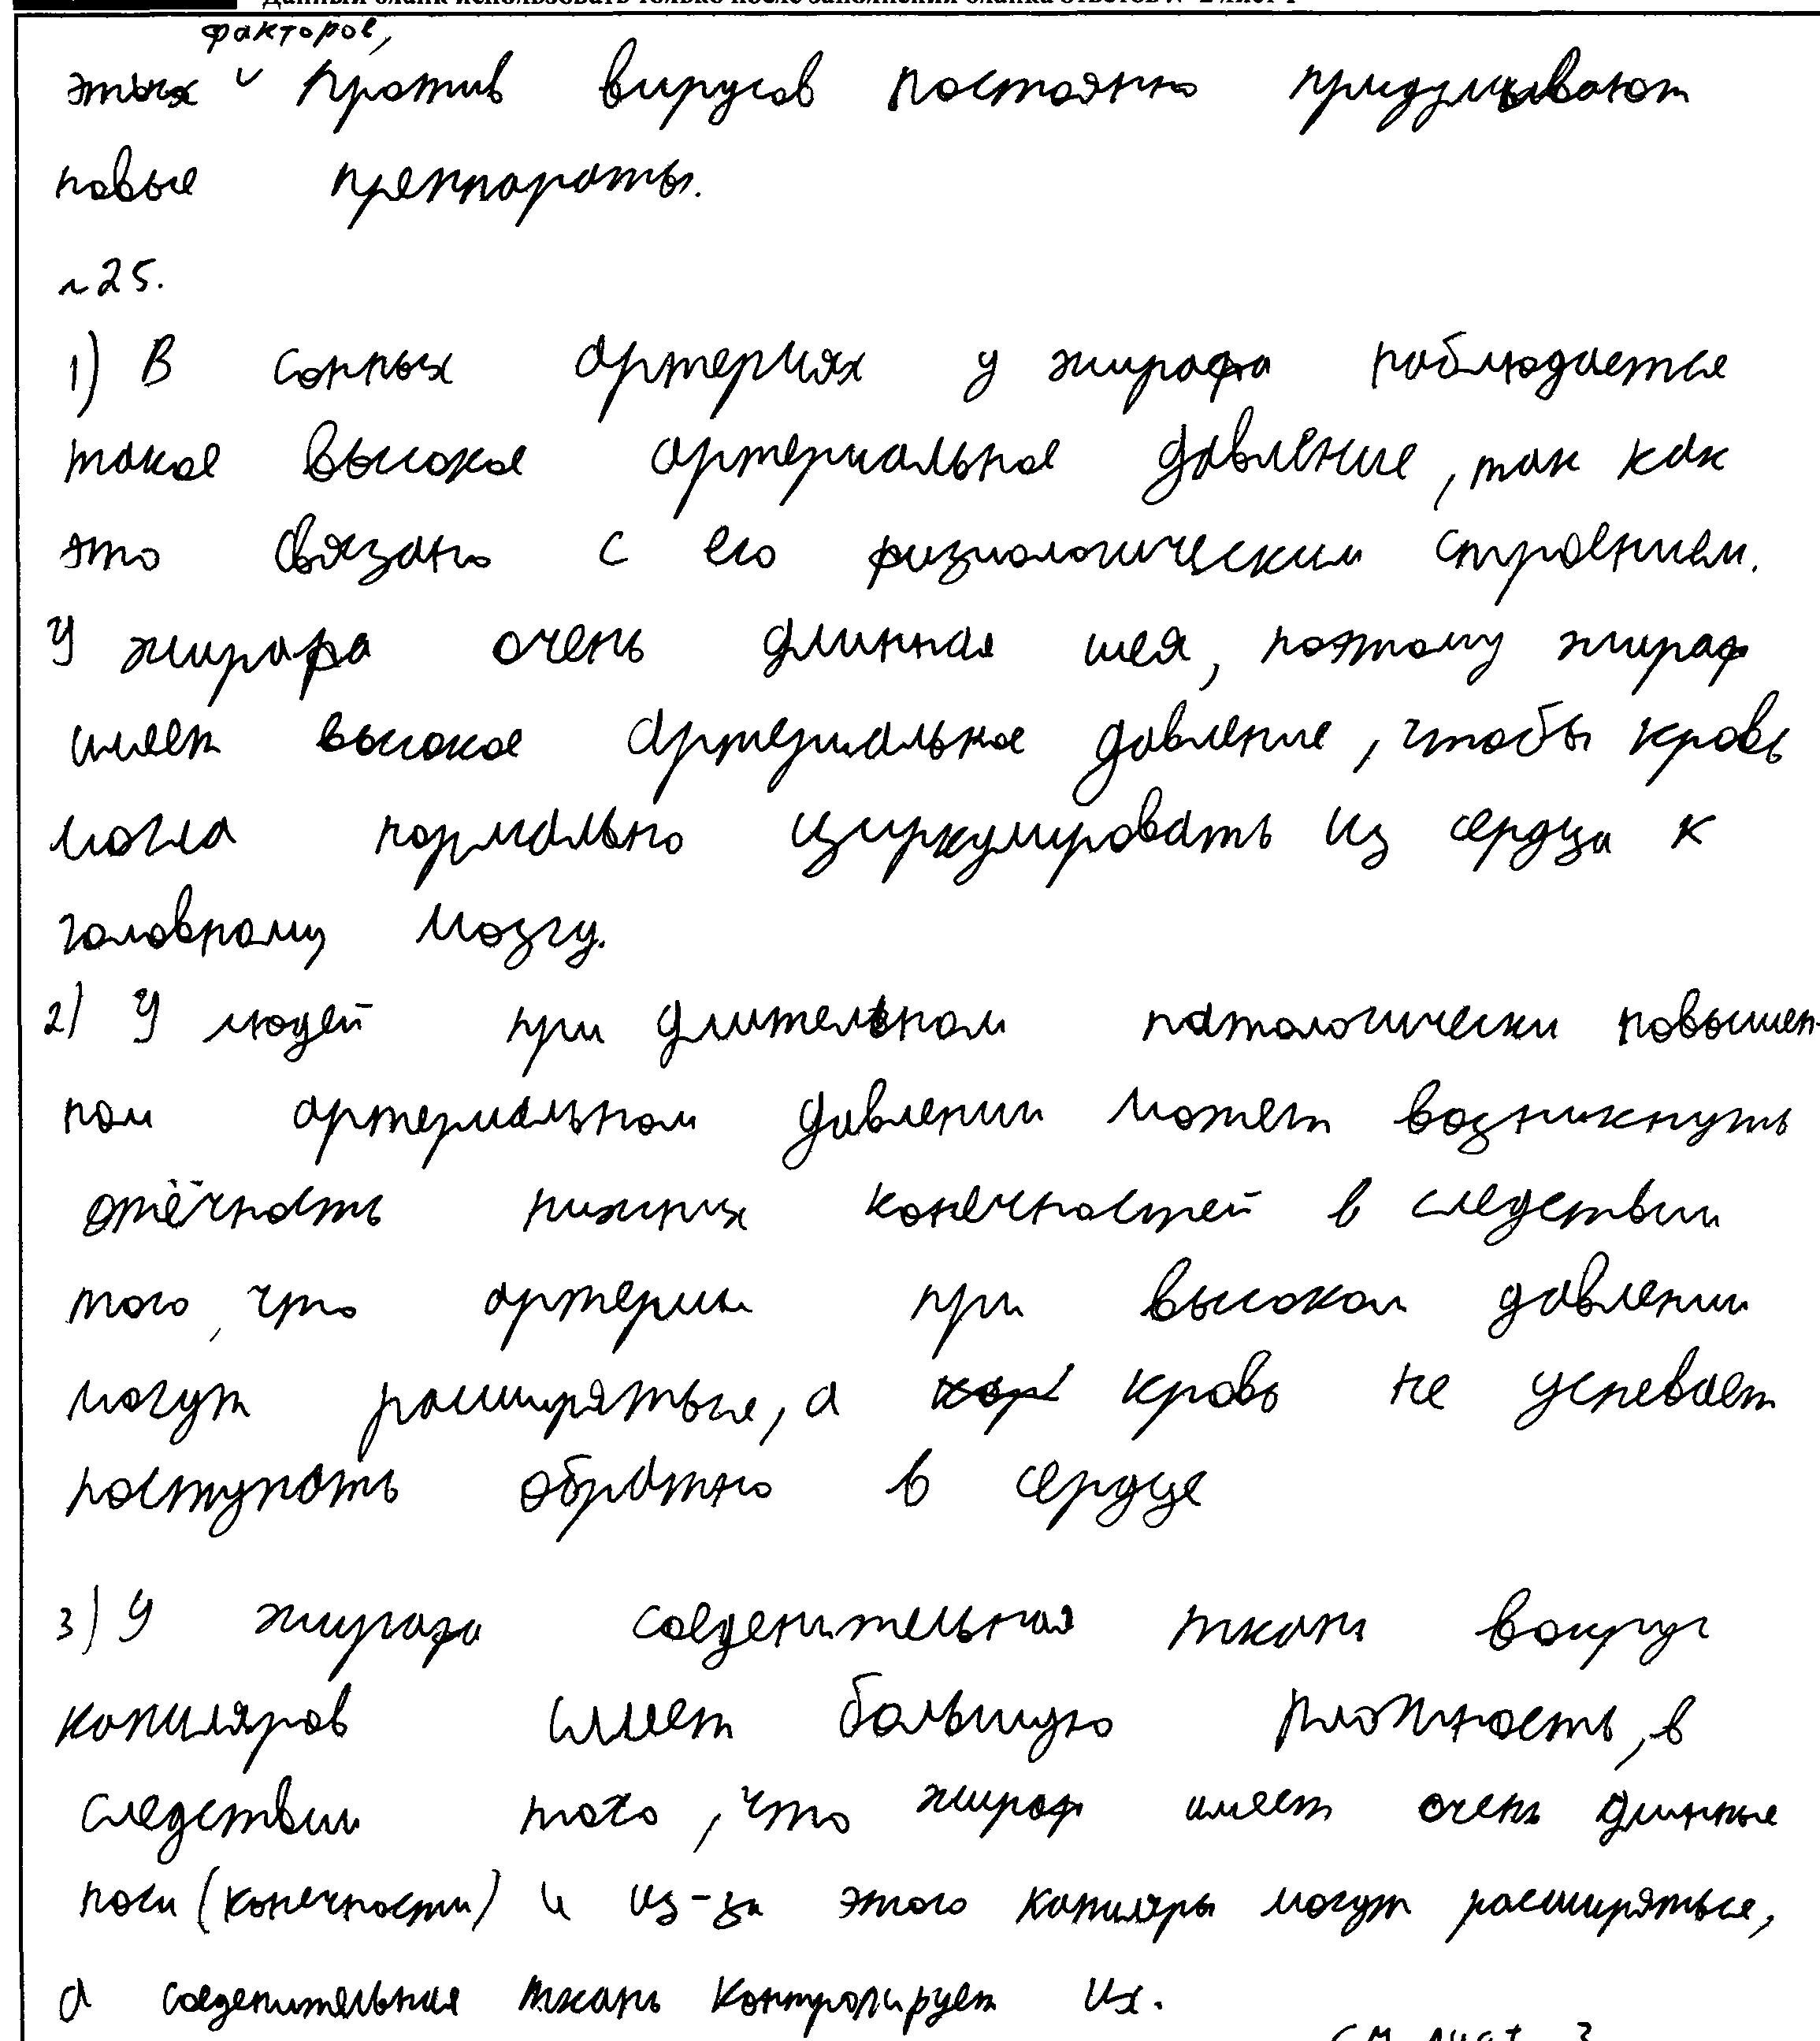 Данный бланк использовать только после заполнения бланка ответов № 2 лист 1
факторов,
этих v Против вирусов постоянно придумывают
новые преппараты.
№25.
1) В сонных артериях у жирафа наблюдается
такое высокое артериальное давление, так как
это связано с его физиологическим строением.
У жирафа очень длинная шея, поэтому жираф
имеет высокое артериальное давление, чтобы кровь
могла нормально циркулировать из сердца к
головному мозгу.
2) У людей при длительном патологически повышен-
ном артериальном давлении может возникнуть
отёчность нижних конечностей в следствии
того, что артерии при высоком давлении
могут расширяться, а кровь не успевает
поступать обратно в сердце
3) У жирафа соеденительная ткань вокруг
капиляров имеет большую плотность, в
следствии того, что жираф имеет очень длинные
ноги (конечности) и из-за этого капиляры могут расширяться,
а соеденительная ткань контролирует их.
см лист 3